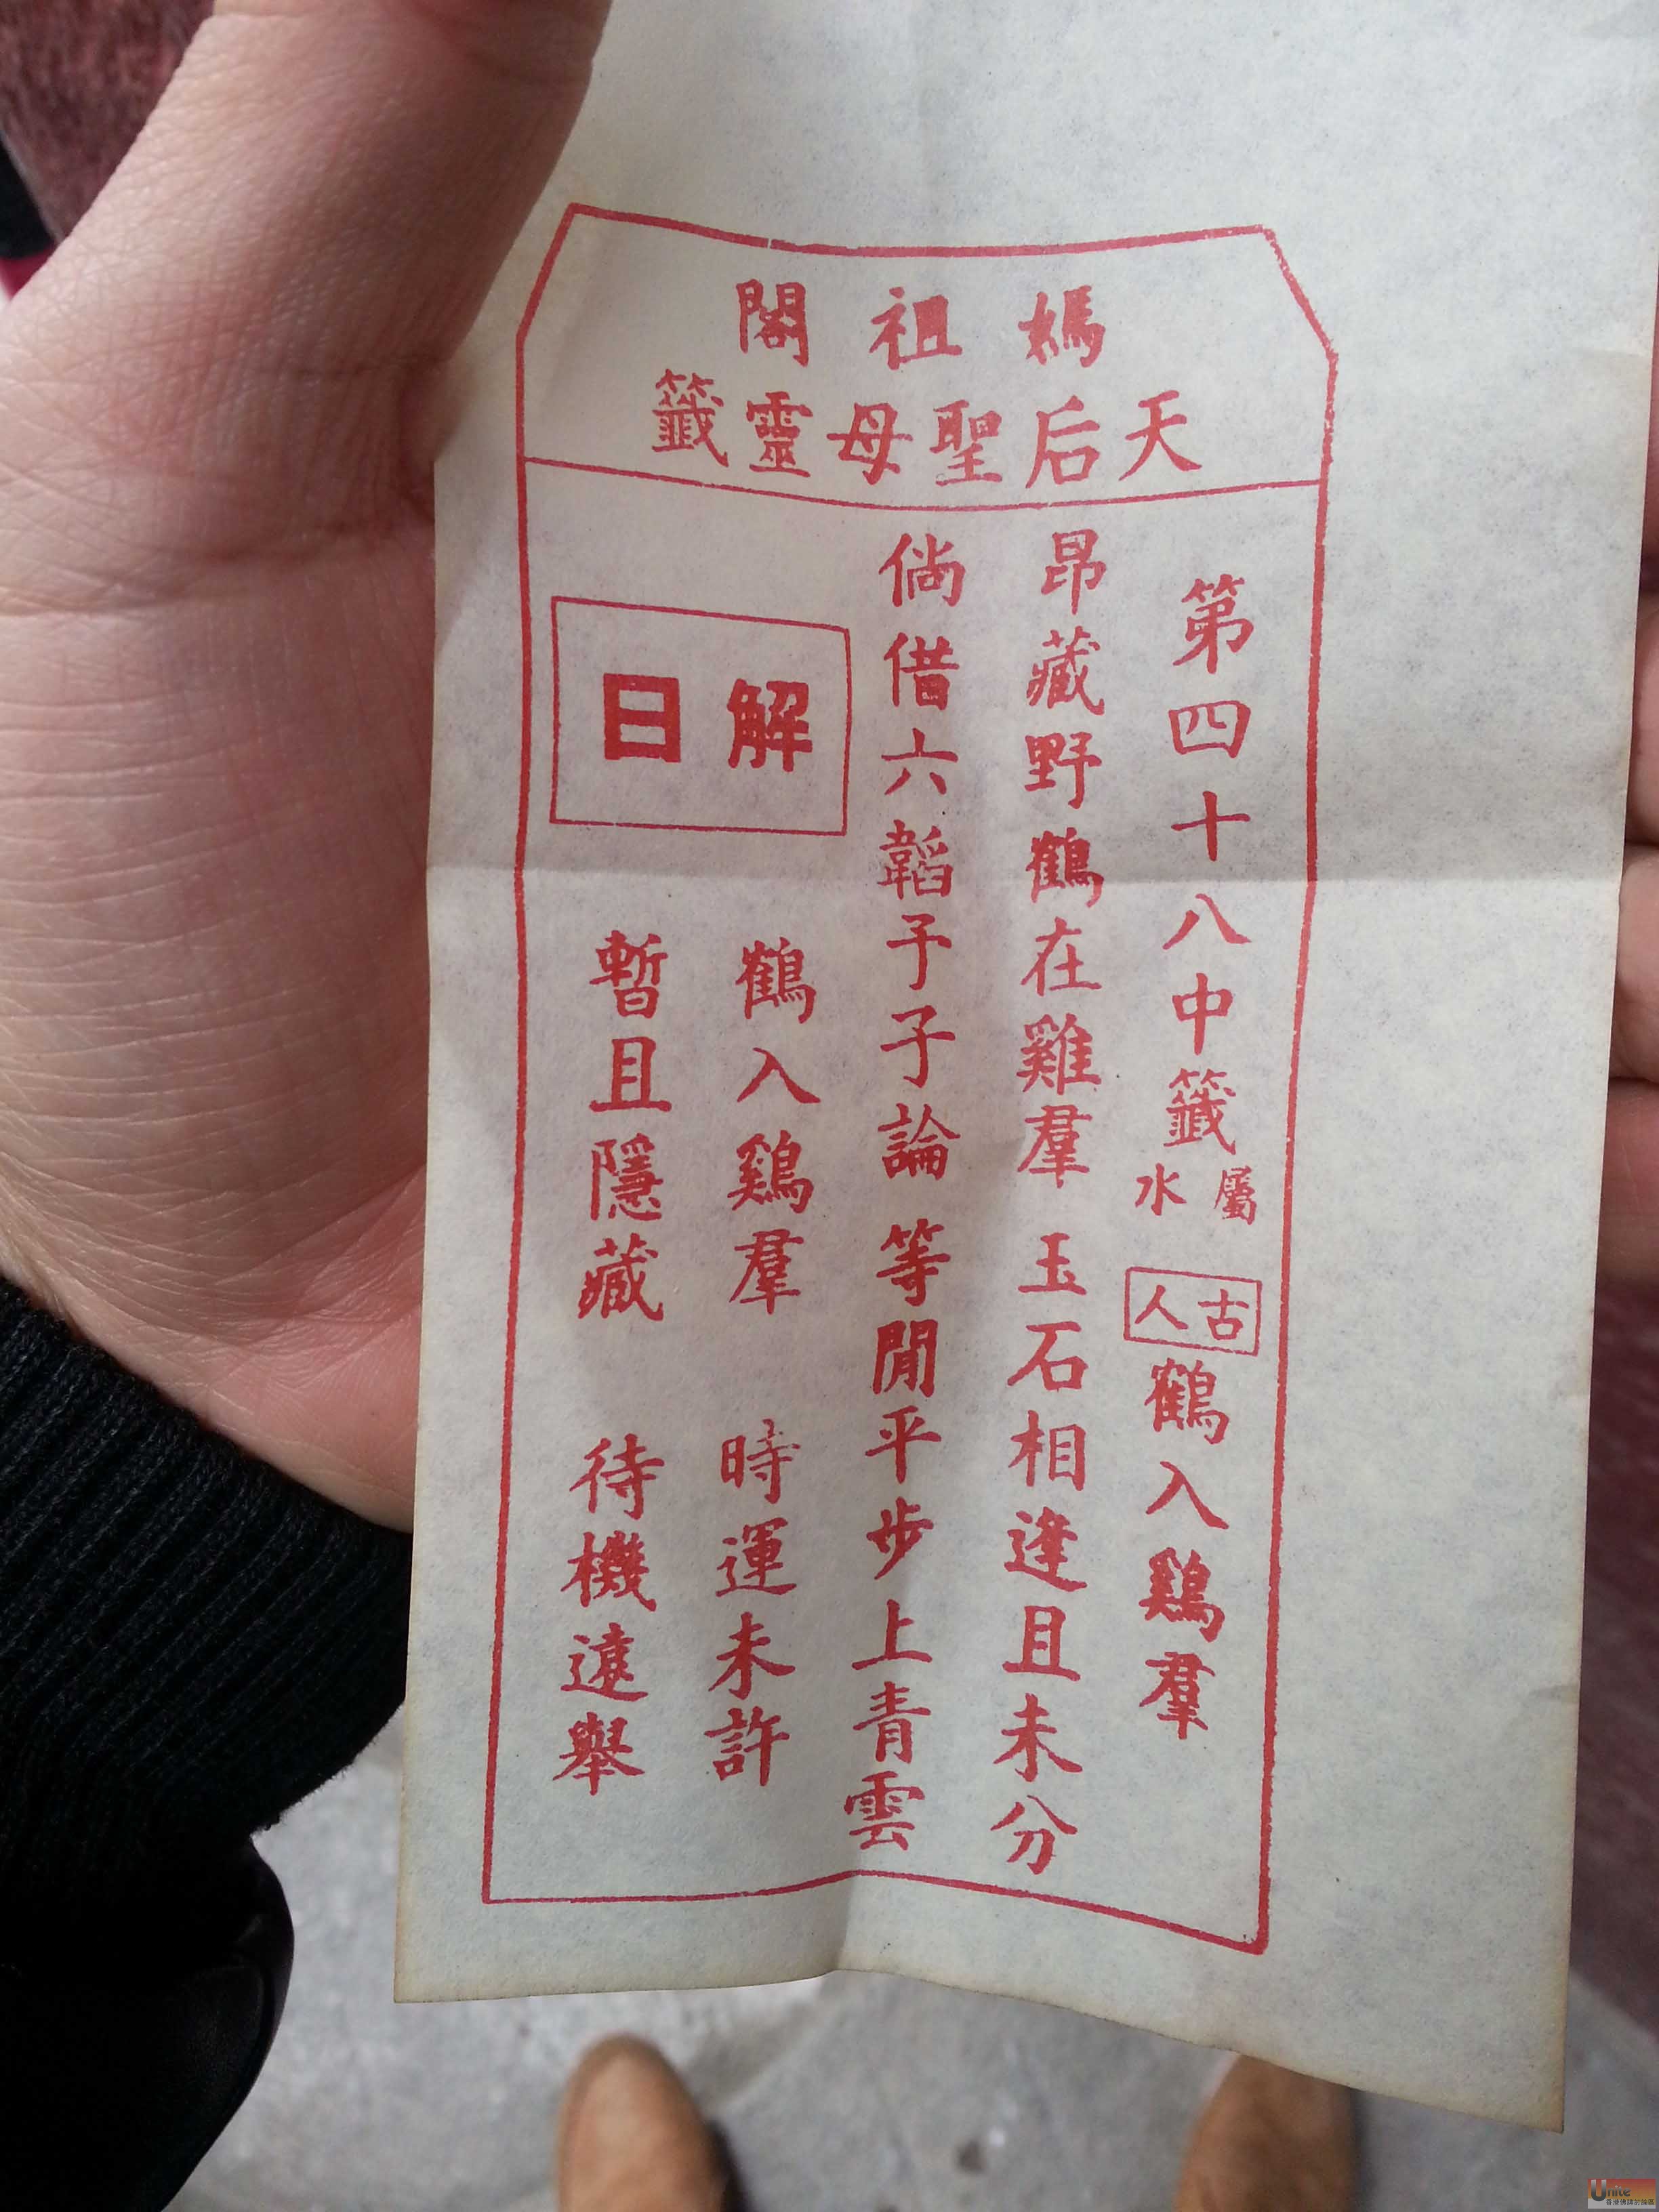 媽祖閣
天后聖母靈籤
第四十八中籤 屬水 古人 鶴入鷄羣
昂藏野鶴在雞羣 玉石相逢且未分
倘借六韜予子論 等閒平步上青雲
解曰
鶴入鷄羣 時運未許
暫且隱藏 待機遠舉
Unite
香港佛牌討論區